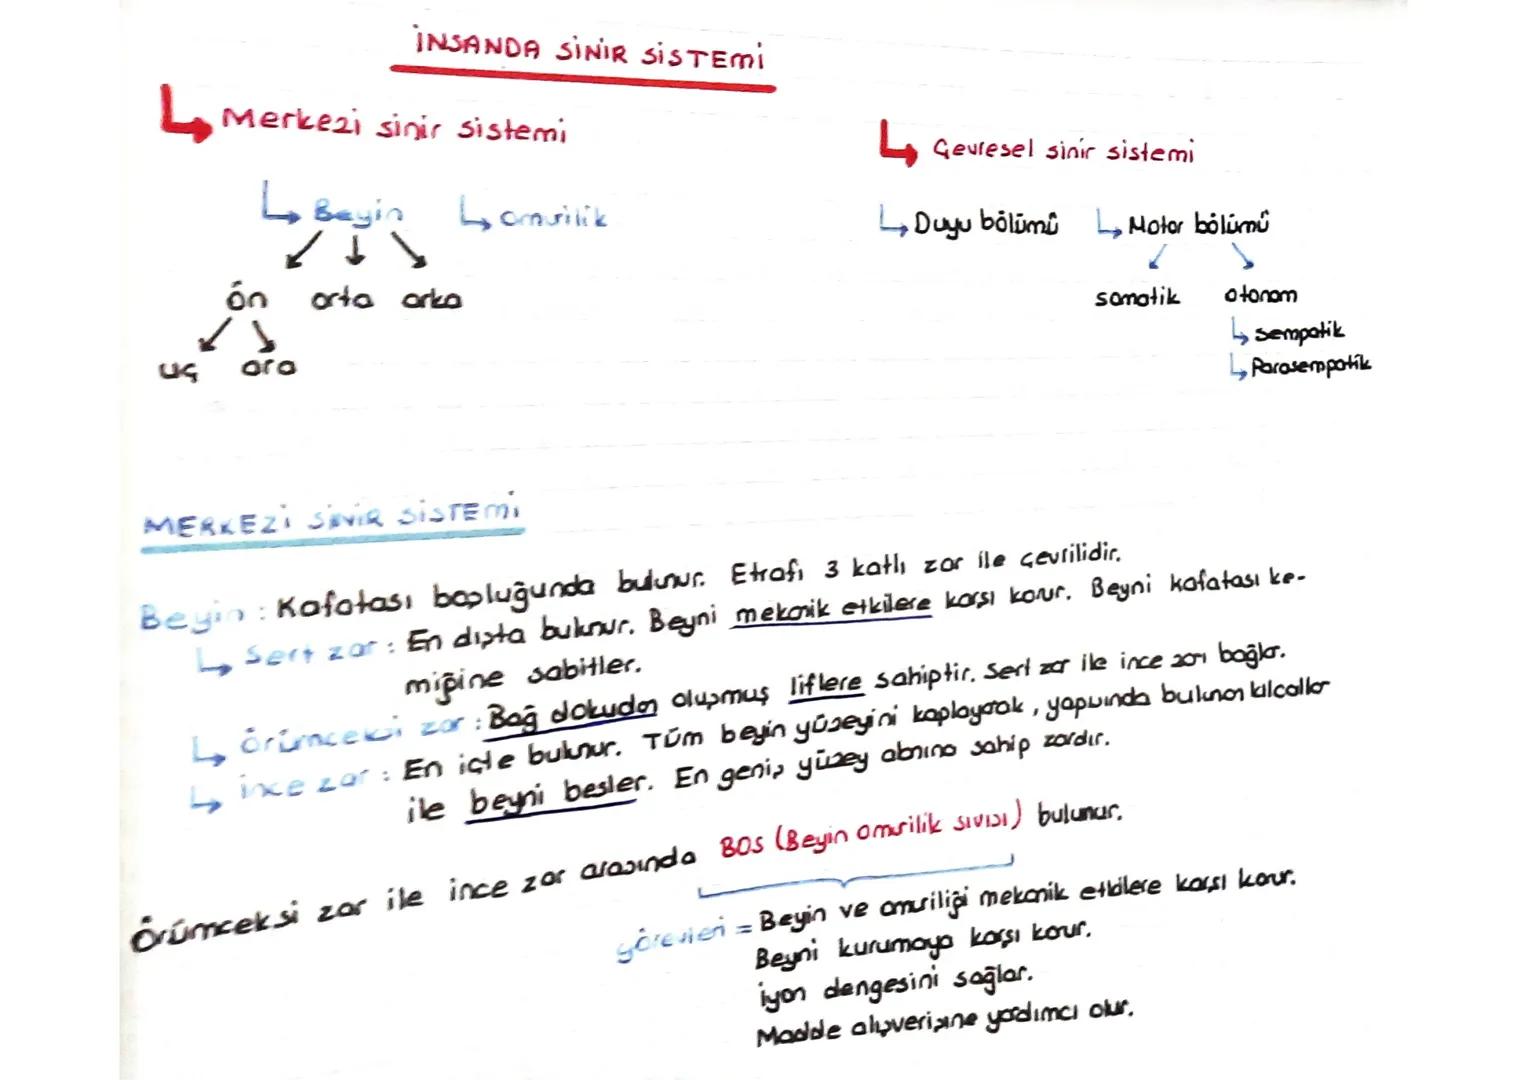 İNSANDA SİNİR SİSTEMİ
Merkezi sinir sistemi
Çevresel sinir sistemi
Beyin omurilik
Duyu bölümü Motor bölümü
ön orta arka
somatik otonom
sempatik
uç ara
Parasempatik
MERKEZİ SİNİR SİSTEMİ
Beyin : Kafatası boşluğunda bulunur. Etrafı 3 katlı zar ile çevrilidir.
Sert zar : En dışta bulunur. Beyni mekanik etkilere karşı korur. Beyni kafatası ke-
miğine sabitler.
Örümceksi zar : Bağ dokudan oluşmuş liflere sahiptir. Sert zar ile ince zarı bağlar.
İnce zar : En içte bulunur. Tüm beyin yüzeyini kaplayarak, yapısında bulunan kılcallar
ile beyni besler. En geniş yüzey alanına sahip zardır.
Örümceksi zar ile ince zar arasında BOS (Beyin omurilik sıvısı) bulunur.
görevleri = Beyin ve omuriliği mekanik etkilere karşı korur.
Beyni kurumaya karşı korur.
İyon dengesini sağlar.
Madde alışverişine yardımcı olur.